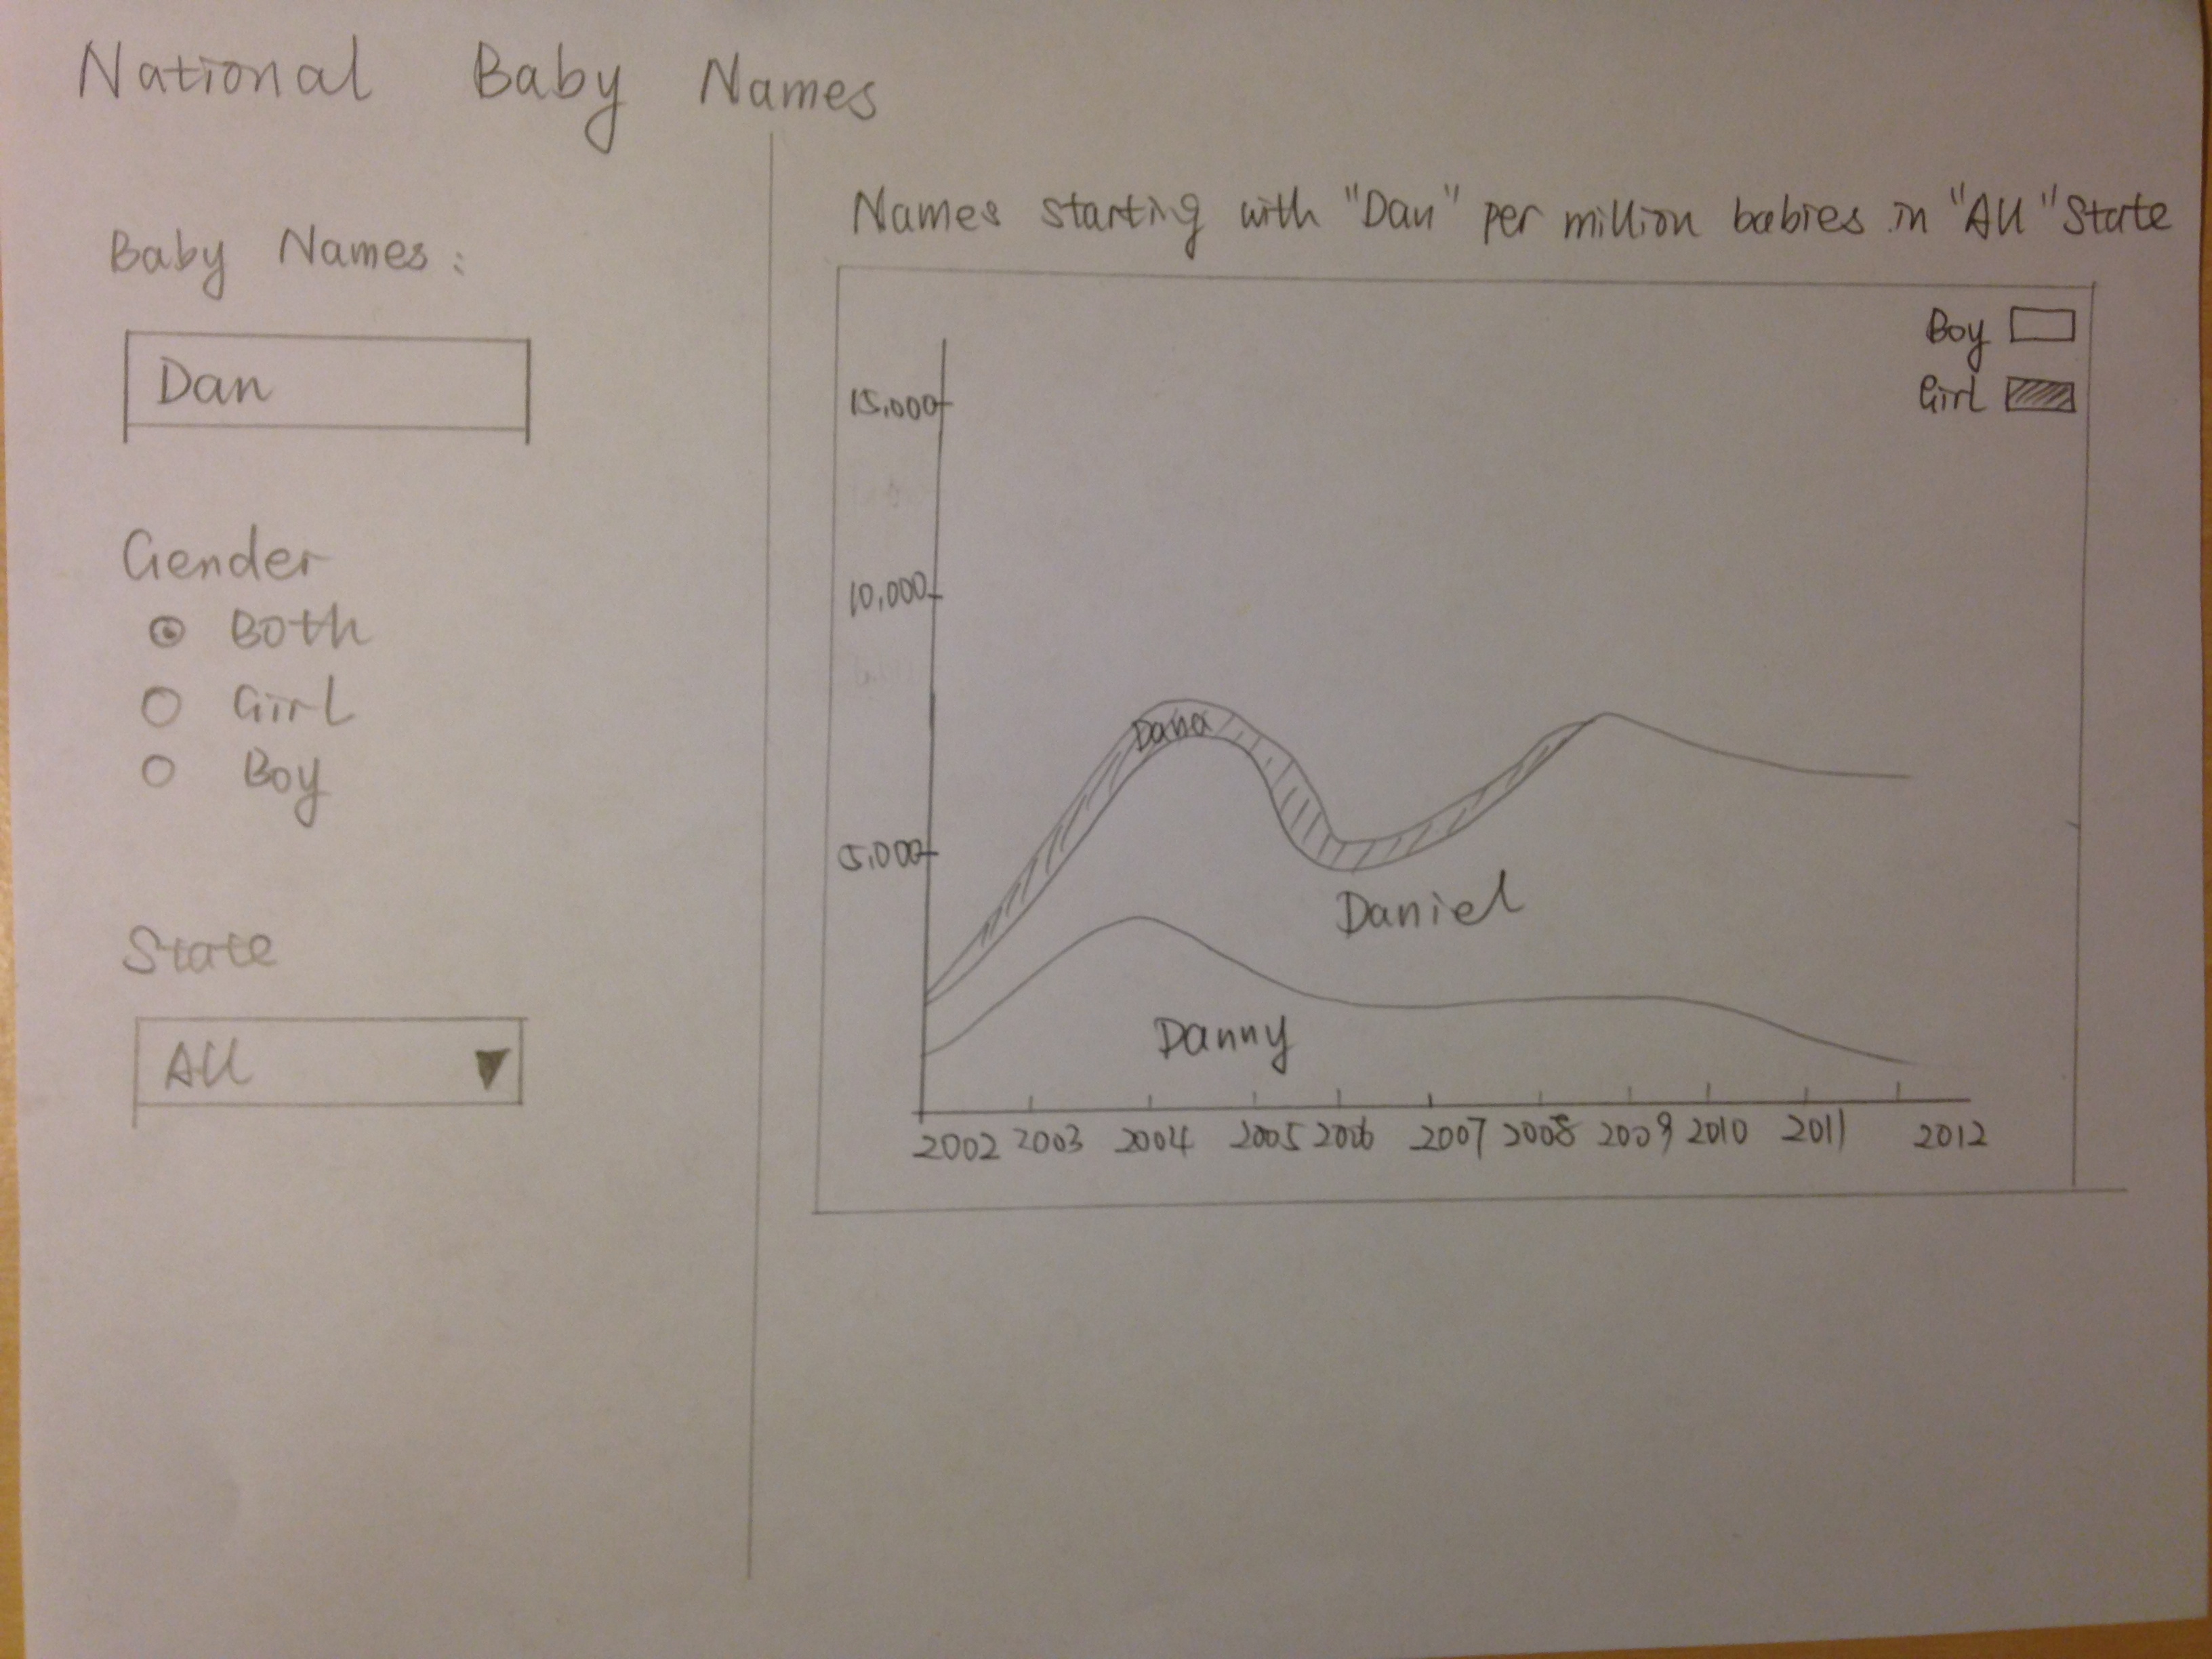 National Baby Names
Baby Names:
Dan
Gender
Both
Girl
Boy
State
All
Names starting with "Dan" per million babies in "All" State
Boy
Girl
15,000
10,000
5,000
Dana
Daniel
Danny
2002 2003 2004 2005 2006 2007 2008 2009 2010 2011 2012